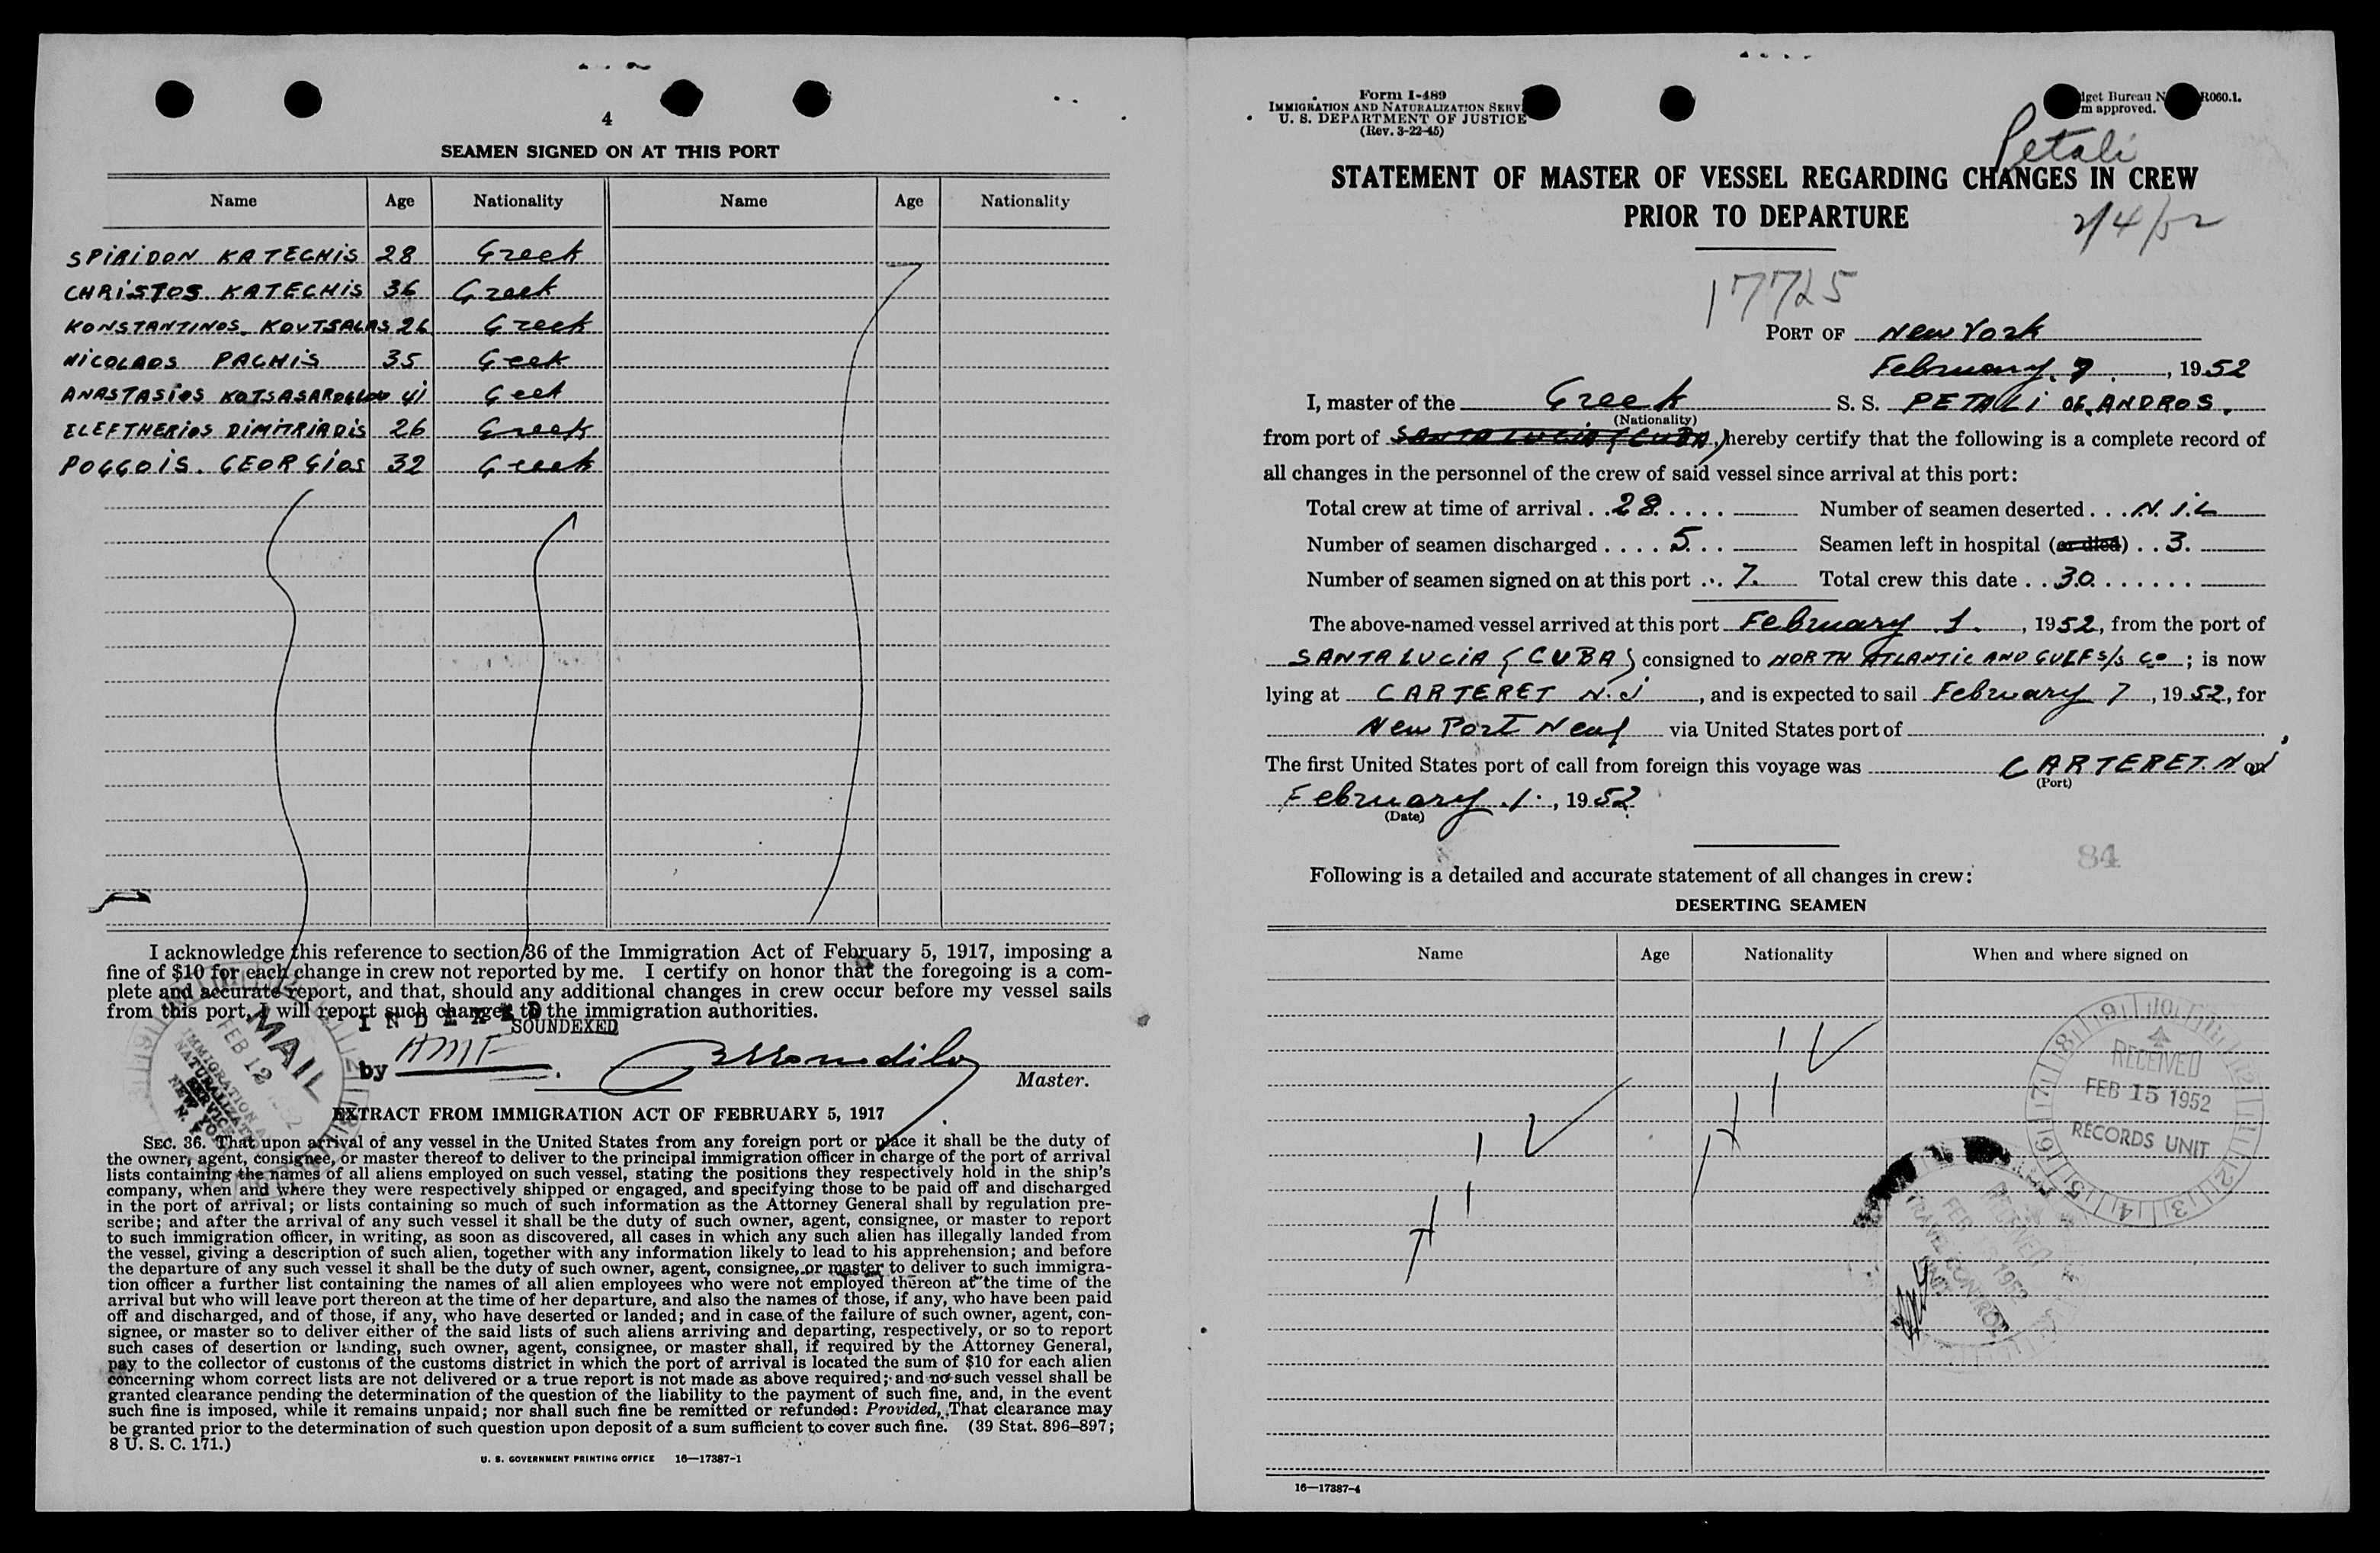 4
SEAMEN SIGNED ON AT THIS PORT
Name Age Nationality Name Age Nationality
SPIRIDON KATECHIS 28 Greek
CHRISTOS KATECHIS 36 Greek
KONSTANTINOS KOUTSALAS 26 Greek
NICOLAOS PACHIS 35 Geek
ANASTASIOS KOTSASAROGLOU 41 Geek
ELEFTHERIOS DIMITRIADIS 26 Greek
POGGOIS. GEORGIOS 32 Greek
I acknowledge this reference to section 36 of the Immigration Act of February 5, 1917, imposing a
fine of $10 for each change in crew not reported by me. I certify on honor that the foregoing is a com-
plete and accurate report, and that, should any additional changes in crew occur before my vessel sails
from this port, I will report such changes to the immigration authorities.
INDEXED
SOUNDEXED
by AMF
Master.
MAIL
FEB 12 1952
IMMIGRATION
NATURALIZATION
SERVICE
NEW YORK
N. Y.
EXTRACT FROM IMMIGRATION ACT OF FEBRUARY 5, 1917
SEC. 36. That upon arrival of any vessel in the United States from any foreign port or place it shall be the duty of
the owner, agent, consignee, or master thereof to deliver to the principal immigration officer in charge of the port of arrival
lists containing the names of all aliens employed on such vessel, stating the positions they respectively hold in the ship's
company, when and where they were respectively shipped or engaged, and specifying those to be paid off and discharged
in the port of arrival; or lists containing so much of such information as the Attorney General shall by regulation pre-
scribe; and after the arrival of any such vessel it shall be the duty of such owner, agent, consignee, or master to report
to such immigration officer, in writing, as soon as discovered, all cases in which any such alien has illegally landed from
the vessel, giving a description of such alien, together with any information likely to lead to his apprehension; and before
the departure of any such vessel it shall be the duty of such owner, agent, consignee, or master to deliver to such immigra-
tion officer a further list containing the names of all alien employees who were not employed thereon at the time of the
arrival but who will leave port thereon at the time of her departure, and also the names of those, if any, who have been paid
off and discharged, and of those, if any, who have deserted or landed; and in case of the failure of such owner, agent, con-
signee, or master so to deliver either of the said lists of such aliens arriving and departing, respectively, or so to report
such cases of desertion or landing, such owner, agent, consignee, or master shall, if required by the Attorney General,
pay to the collector of customs of the customs district in which the port of arrival is located the sum of $10 for each alien
concerning whom correct lists are not delivered or a true report is not made as above required; and no such vessel shall be
granted clearance pending the determination of the question of the liability to the payment of such fine, and, in the event
such fine is imposed, while it remains unpaid; nor shall such fine be remitted or refunded: Provided, That clearance may
be granted prior to the determination of such question upon deposit of a sum sufficient to cover such fine. (39 Stat. 896–897;
8 U. S. C. 171.)
U. S. GOVERNMENT PRINTING OFFICE 16—17387-1
Form I-489
IMMIGRATION AND NATURALIZATION SERV
U. S. DEPARTMENT OF JUSTICE
(Rev. 3-22-45)
dget Bureau N R060.1.
m approved.
Petali
STATEMENT OF MASTER OF VESSEL REGARDING CHANGES IN CREW
PRIOR TO DEPARTURE
2/4/52
17725
PORT OF New York
February 7, 1952
I, master of the Greek S. S. PETALI OF ANDROS.
(Nationality)
from port of SANTA LUCIA (CUBA), hereby certify that the following is a complete record of
all changes in the personnel of the crew of said vessel since arrival at this port:
Total crew at time of arrival . . 28 . . . . Number of seamen deserted . . . N.i.L
Number of seamen discharged . . . . 5 . . Seamen left in hospital (or died) . . 3.
Number of seamen signed on at this port . . . 7. Total crew this date . . 30 . . . . . .
The above-named vessel arrived at this port February 1., 1952, from the port of
SANTA LUCIA (CUBA) consigned to NORTH ATLANTIC AND GULF S/S Co ; is now
lying at CARTERET N.J, and is expected to sail February 7, 1952, for
New Port Neus via United States port of
The first United States port of call from foreign this voyage was CARTERET. N J on
(Port)
February 1., 1952
(Date)
84
Following is a detailed and accurate statement of all changes in crew:
DESERTING SEAMEN
Name Age Nationality When and where signed on
RECEIVED
FEB 15 1952
RECORDS UNIT
RECEIVED
FEB 1952
TRAVEL CONTROL
UNIT
16—17387-4